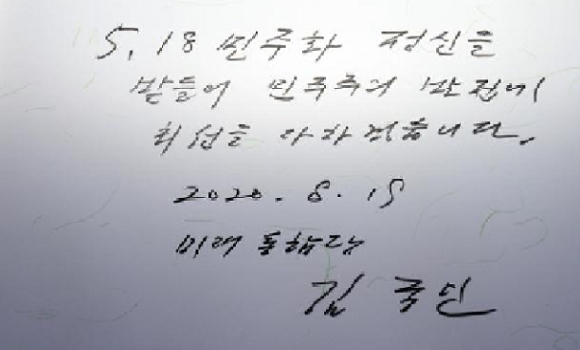 5, 18 민주화 정신을
받들어 민주주의 발전에
최선을 다하겠습니다.
2020. 8. 19
미래통합당
김